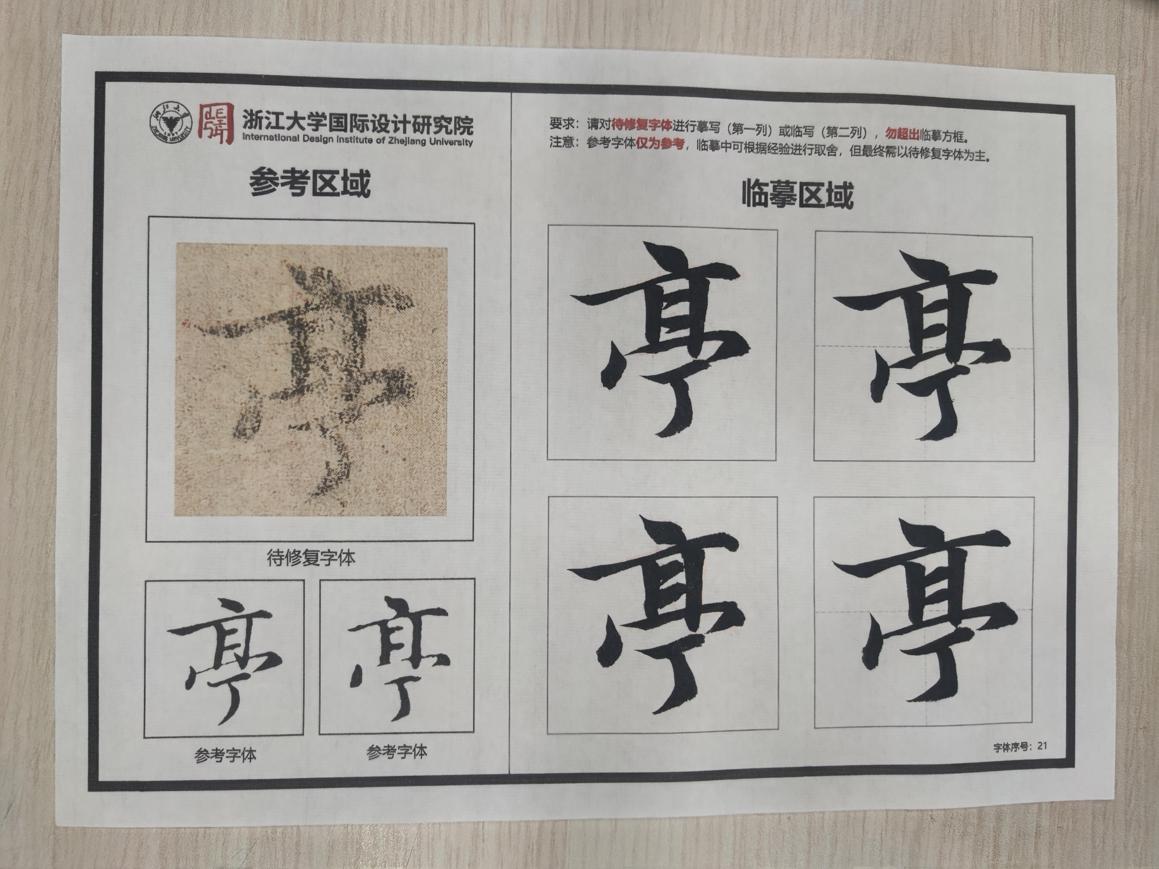 浙江大学国际设计研究院
International Design Institute of Zhejiang University
参考区域
亭
待修复字体
亭
亭
参考字体
参考字体
要求：请对待修复字体进行摹写（第一列）或临写（第二列），勿超出临摹方框。
注意：参考字体仅为参考，临摹中可根据经验进行取舍，但最终需以待修复字体为主。
临摹区域
亭
亭
亭
亭
字体序号：21